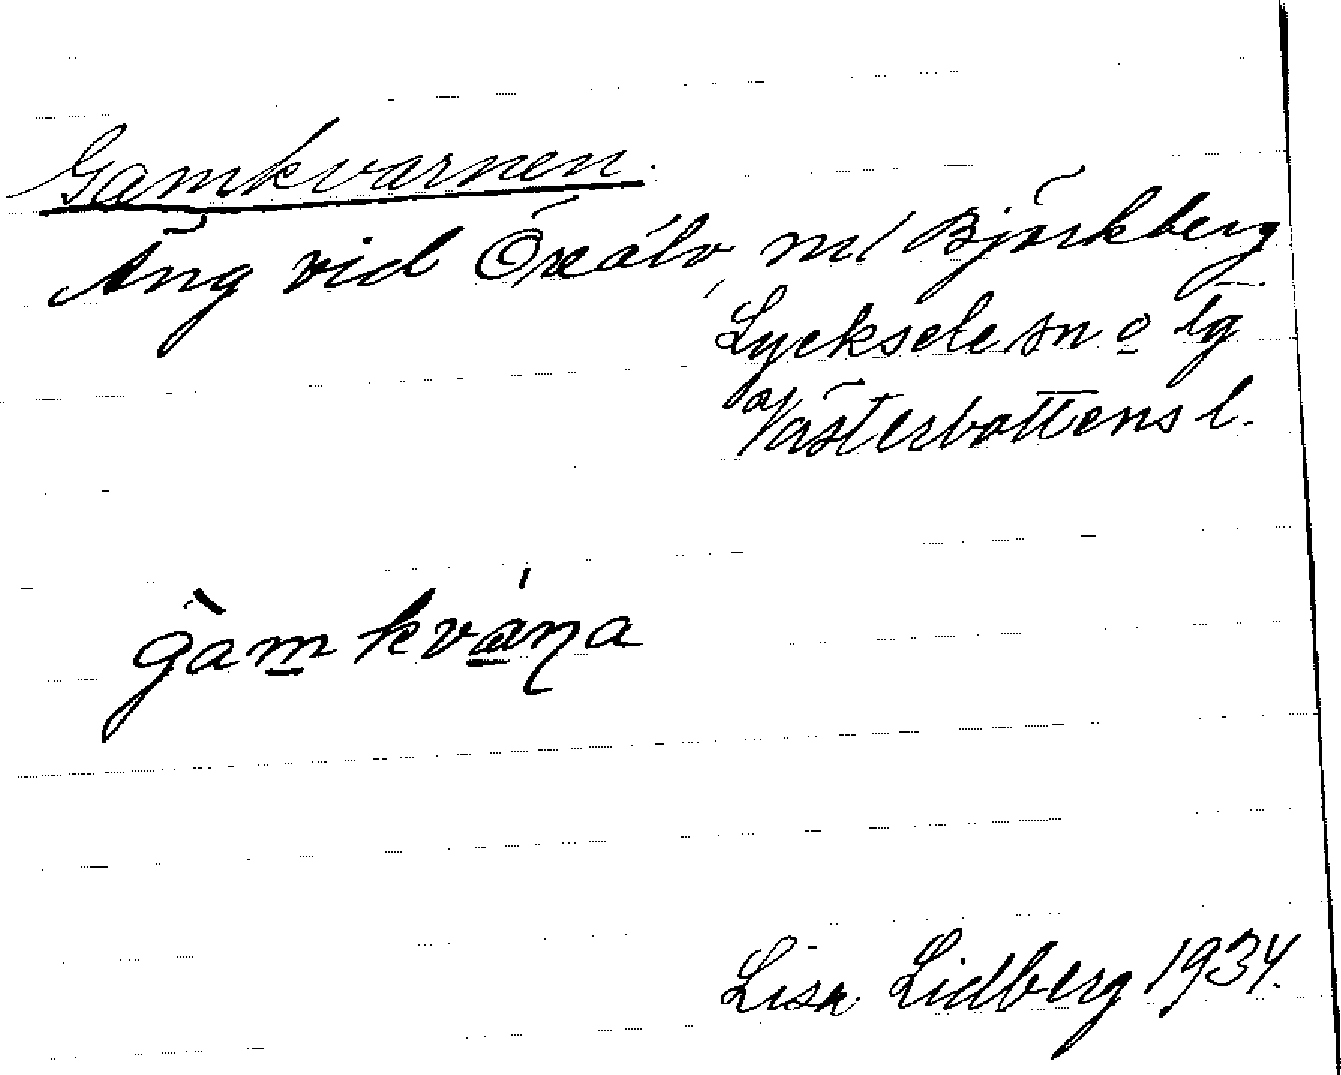 Gamkvarnen.
Äng vid Öxälv, n/ Björkberg
Lycksele sn o lg
Västerbottens l.
gàmkvána
Lisa Lidberg 1934.